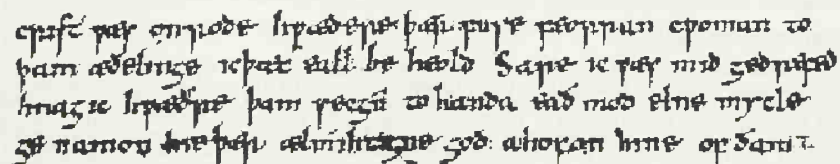 crist wæs on rode hwæðere þær fuse feorran cwoman to
þam æðelinge ic þæt eall be heold Sare ic wæs mid gedrefed
hnag ic hwæðre þam secgū to handa eað mod elne mycle
ge namon hie þær ælmihtigne god ahofon hine of ðam